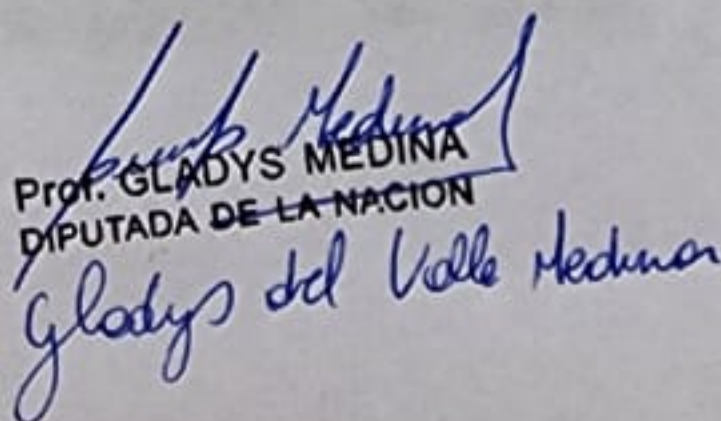 Prof. GLADYS MEDINA
DIPUTADA DE LA NACION
Gladys del Valle Medina